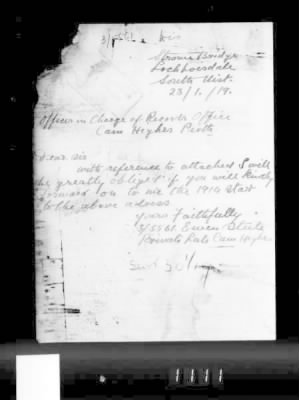 Strome Bridge
Lochboisdale
South Uist.
23/1./19.
Officer in Charge of Records Office
Cam Highrs Perth
Dear Sir
with reference to attached I will
be greatly obliged if you will kindly
forward on to me the 1914 Star
to the above address
Yours Faithfully
Ewen Steele
Private late Cam Highrs